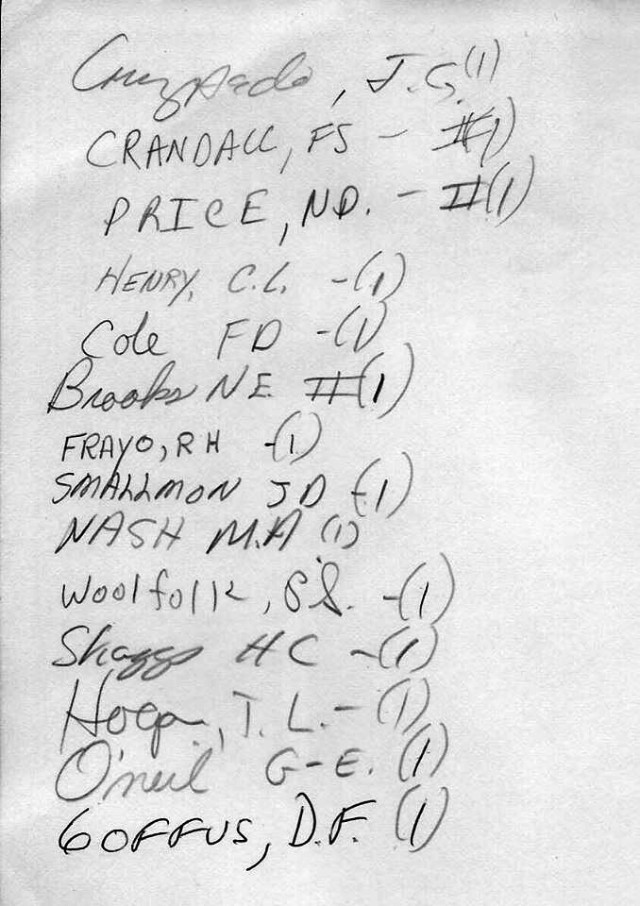 J.G. (1)
CRANDALL, FS - #1)
PRICE, N.D. - #(1)
HENRY, C.L. -(1)
Cole FD -(1)
Brooks N E. #(1)
FRAYO, R H -(1)
SMALLMON J D -(1)
NASH M.A (1)
Woolfolk, S.S. -(1)
Skaggs H C -(1)
Hogan, T. L. - (1)
O'neil G-E. (1)
GOFFUS, D.F. (1)